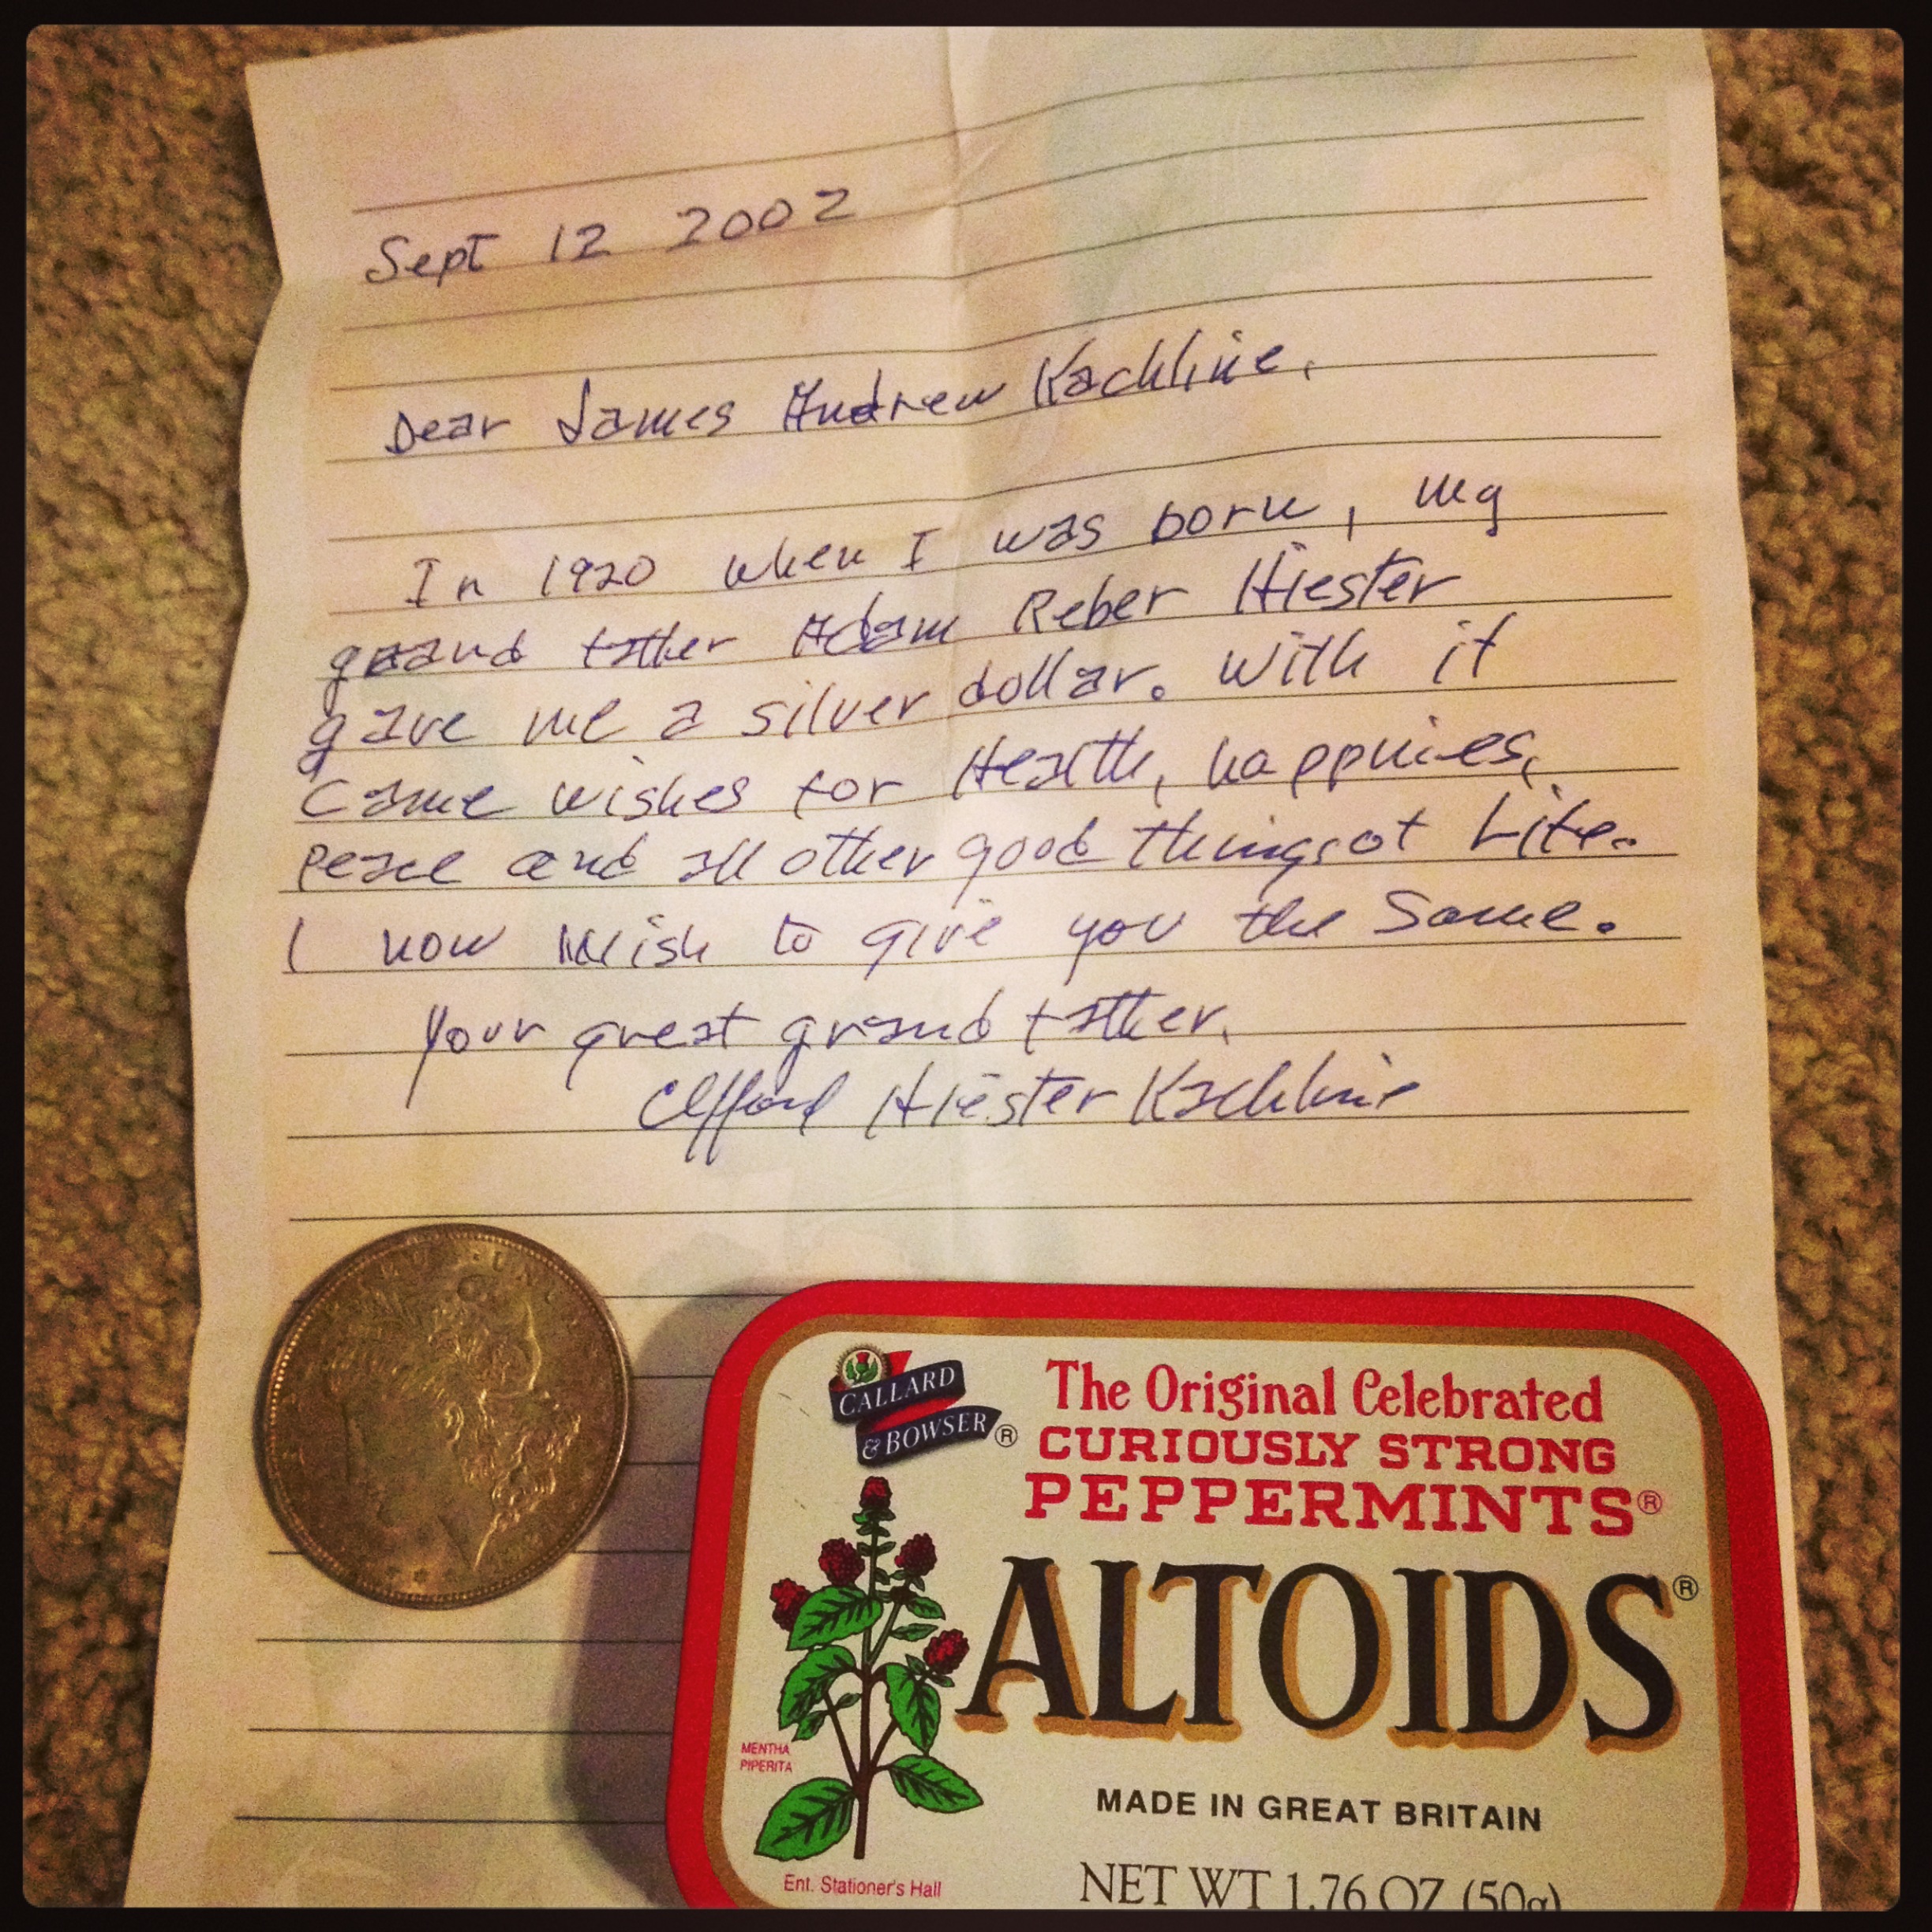 Sept 12 2002
Dear James Andrew Kachline,
In 1920 when I was born, my
grand father Adam Reber Hiester
gave me a silver dollar. With it
came wishes for Health, happnies,
peace and all other good things of Life.
I now wish to give you the same.
Your great grand father,
Clifford Hiester Kachline
CALLARD
& BOWSER®
The Original Celebrated
CURIOUSLY STRONG
PEPPERMINTS®
ALTOIDS®
MENTHA
PIPERITA
MADE IN GREAT BRITAIN
Ent. Stationer's Hall
NET WT 1.76 OZ (50g)